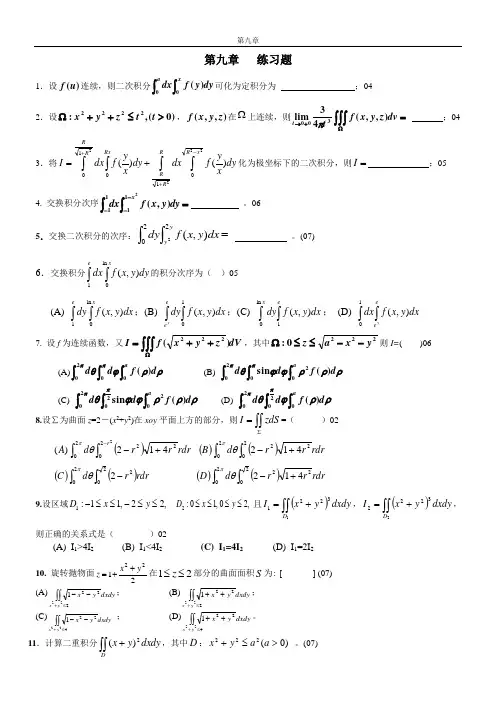 第九章
第九章 练习题
1．设 f(u) 连续，则二次积分 ∫_0^a dx ∫_0^x f(y)dy 可化为定积分为 ；04
2．设 Ω : x²+y²+z² ≤ t²,(t>0)， f(x,y,z) 在 Ω 上连续，则 lim_{t→0+0} 3/(4πt³) ∭_Ω f(x,y,z)dv = ；04
3．将 I = ∫_0^{R/√(1+R²)} dx ∫_0^{Rx} f(y/x)dy + ∫_{R/√(1+R²)}^R dx ∫_0^{√(R²−x²)} f(y/x)dy 化为极坐标下的二次积分，则 I = ；05
4. 交换积分次序 ∫_{−1}^1 dx ∫_{−1}^{1−x²} f(x,y)dy = 。06
5．交换二次积分的次序：∫_0^2 dy ∫_{y²}^{2y} f(x,y)dx = 。(07)
6．交换积分 ∫_1^e dx ∫_0^{ln x} f(x,y)dy 的积分次序为（ ）05
(A) ∫_1^e dy ∫_0^{ln x} f(x,y)dx；(B) ∫_{e^y}^e dy ∫_0^1 f(x,y)dx；(C) ∫_0^{ln x} dy ∫_1^e f(x,y)dx； (D) ∫_0^1 dx ∫_{e^y}^e f(x,y)dx
7. 设 f 为连续函数，又 I = ∭_Ω f(√(x²+y²+z²))dV ，其中 Ω : 0 ≤ z ≤ √(a²−x²−y²) 则 I=( )06
(A) ∫_0^{2π} dθ ∫_0^π dφ ∫_0^a f(ρ)dρ (B) ∫_0^{2π} dθ ∫_0^π sinφdφ ∫_0^a ρ² f(ρ)dρ
(C) ∫_0^{2π} dθ ∫_0^{π/2} sinφdφ ∫_0^a ρ² f(ρ)dρ (D) ∫_0^{2π} dθ ∫_0^{π/2} dφ ∫_0^a ρ² f(ρ)dρ
8.设∑为曲面 z=2－(x²+y²)在 xoy 平面上方的部分，则 I = ∬_Σ zdS =（ ）02
(A) ∫_0^{2π} dθ ∫_0^{2−r²} (2−r²)√(1+4r²) rdr (B) ∫_0^{2π} dθ ∫_0^2 (2−r²)√(1+4r²) rdr
(C) ∫_0^{2π} dθ ∫_0^{√2} (2−r²)rdr (D) ∫_0^{2π} dθ ∫_0^{√2} (2−r²)√(1+4r²) rdr
9.设区域 D₁ : −1≤x≤1,−2≤y≤2, D₂ : 0≤x≤1,0≤y≤2, 且 I₁ = ∬_{D₁} (x²+y²)³dxdy， I₂ = ∬_{D₂} (x²+y²)³dxdy，
则正确的关系式是( )02
(A) I₁>4I₂ (B) I₁<4I₂ (C) I₁=4I₂ (D) I₁=2I₂
10. 旋转抛物面 z = 1+(x²+y²)/2 在 1≤z≤2 部分的曲面面积 S 为: [ ] (07)
(A) ∬_{x²+y²≤2} √(1−x²−y²) dxdy； (B) ∬_{x²+y²≤2} √(1+x²+y²) dxdy；
(C) ∬_{x²+y²≤4} √(1−x²−y²) dxdy ； (D) ∬_{x²+y²≤4} √(1+x²+y²) dxdy。
11．计算二重积分 ∬_D (x+y)²dxdy，其中 D：x²+y²≤a²(a>0) 。(07)